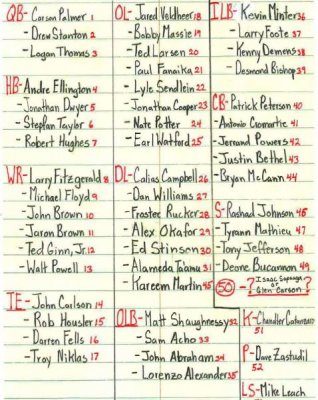 QB- Carson Palmer 1
-Drew Stanton 2
-Logan Thomas 3
HB- Andre Ellington 4
-Jonathan Dwyer 5
-Stepfan Taylor 6
-Robert Hughes 7
WR- Larry Fitzgerald 8
-Michael Floyd 9
-John Brown 10
-Jaron Brown 11
-Ted Ginn, Jr. 12
-Walt Powell 13
TE- John Carlson 14
-Rob Housler 15
-Darren Fells 16
-Troy Niklas 17
OL- Jared Veldheer 18
-Bobby Massie 19
-Ted Larsen 20
-Paul Fanaika 21
-Lyle Sendlein 22
-Jonathan Cooper 23
-Nate Potter 24
-Earl Watford 25
DL- Calias Campbell 26
-Dan Williams 27
-Frostee Rucker 28
-Alex Okafor 29
-Ed Stinson 30
-Alameda Ta'amu 31
-Kareem Martin 45
OLB- Matt Shaughnessy 32
-Sam Acho 33
-John Abraham 34
-Lorenzo Alexander 35
ILB- Kevin Minter 36
-Larry Foote 37
-Kenny Demens 38
-Desmond Bishop 39
CB- Patrick Peterson 40
-Antonio Cromartie 41
-Jerraud Powers 42
-Justin Bethel 43
-Bryan McCann 44
S- Rashad Johnson 46
-Tyrann Mathieu 47
-Tony Jefferson 48
-Deone Bucannon 49
50 -? Isaac Sopoaga ?
or
Glen Carson
K- Chandler Catanzaro
51
P- Dave Zastudil
52
LS- Mike Leach